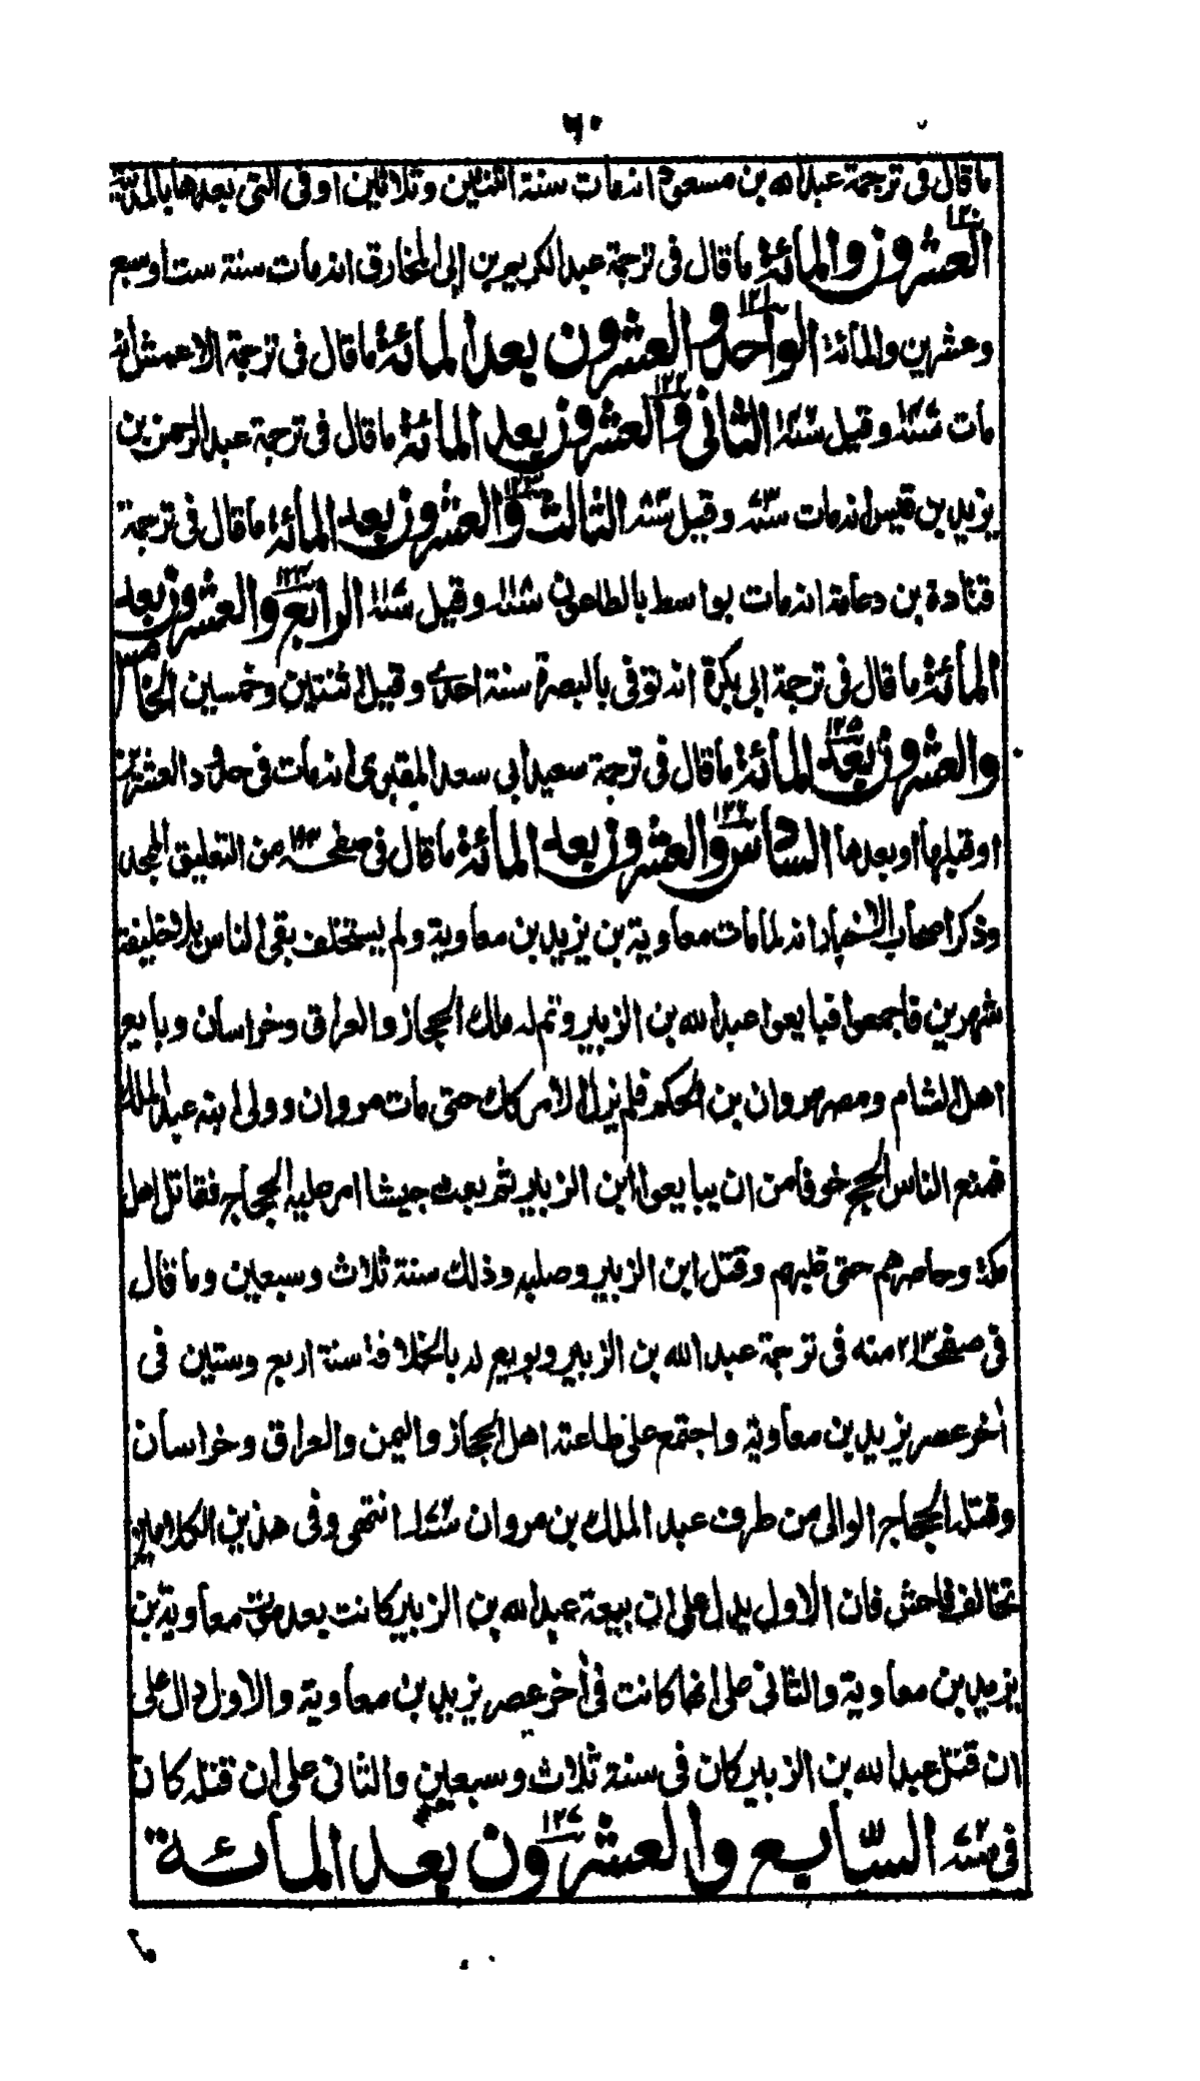 ٦٠
ما قال فى ترجمة عبد الله بن مسعود انه مات سنة اثنتين وثلاثين او فى التى بعدها بالمدينة
العشرون والمائة ١٢٠ ما قال فى ترجمة عبد الكريم بن ابى المخارق انه مات سنة ست او سبع
وعشرين والمائة الواحد والعشرون بعد المائة ١٢١ ما قال فى ترجمة الاعمش انه
مات وقيل الثانى والعشرون بعد المائة ١٢٢ ما قال فى ترجمة عبد الرحمن بن
يزيد بن قيس انه مات سنة ٧٣ وقيل الثالث والعشرون بعد المائة ١٢٣ ما قال فى ترجمة
قتادة بن دعامة انه مات بواسط بالطاعون وقيل الرابع والعشرون بعد ١٢٤
المائة ما قال فى ترجمة ابى بكرة انه توفى بالبصرة سنة احدى وقيل اثنتين وخمسين الخامس
والعشرون بعد المائة ١٢٥ ما قال فى ترجمة سعيد ابى سعد المقبرى انه مات فى حدود العشرين
او قبلها او بعدها السادس والعشرون بعد المائة ١٢٦ ما قال فى صفحه من التعليق الممجد
وذكر اصحاب الاخبار انه لما مات معاوية بن يزيد بن معاوية ولم يستخلف بقى الناس بلا خليفة
شهرين فاجمعوا فبايعوا عبد الله بن الزبير وتم له ملك الحجاز والعراق وخراسان وبايع
اهل الشام ومصر مروان بن الحكم فلم يزل الامر كك حتى مات مروان وولى ابنه عبد الملك
فمنع الناس الحج خوفا من ان يبايعوا ابن الزبير ثم بعث جيشا امر عليه الحجاج فقاتل اهل
مكة وحاصرهم حتى غلبهم وقتل ابن الزبير وصلبه وذلك سنة ثلاث وسبعين وما قال
فى صفحه ٢١٣ منه فى ترجمة عبد الله بن الزبير وبويع له بالخلافة سنة اربع وستين فى
أخر عصر يزيد بن معاوية واجتمع على طاعته اهل الحجاز واليمن والعراق وخراسان
وقتله الحجاج الوالى من طرف عبد الملك بن مروان سنة ٧٢ انتهى وفى هذين الكلامين
تخالف فاحش فان الاول يدل على ان بيعة عبد الله بن الزبير كانت بعد موت معاوية بن
يزيد بن معاوية والثانى على انها كانت فى أخر عصر يزيد بن معاوية والاول دال على
ان قتل عبد الله بن الزبير كان فى سنة ثلاث وسبعين والثانى على ان قتله كان
فى سنة ٧٢ السابع والعشرون بعد المائة ١٢٧
ما